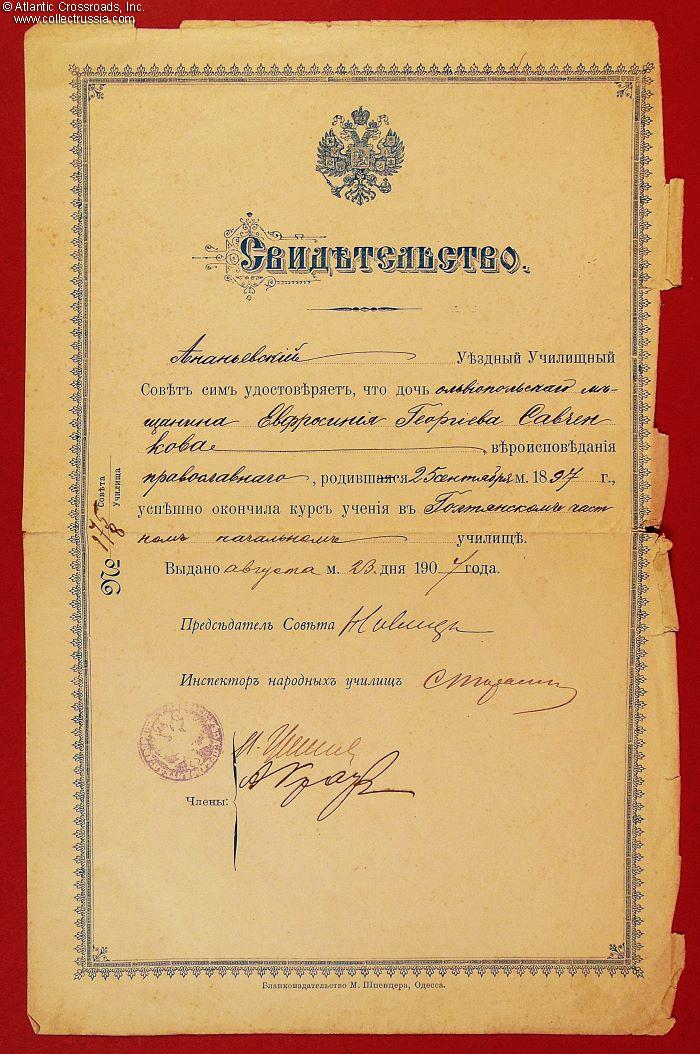 © Atlantic Crossroads, Inc.
www.collectrussia.com
Свидѣтельство.
Ананьевскій Уѣздный Училищный
Совѣтъ симъ удостовѣряетъ, что дочь ольвіопольскаго мѣ-
щанина Евфросинія Георгіева Савчен
кова, вѣроисповѣданія
православнаго, родившаяся 25 сентября м. 1897 г.,
успѣшно окончила курсъ ученія въ Голтянскомъ част
номъ начальномъ училищѣ.
Выдано августа м. 23 дня 1907 года.
№ 175/8
Совѣта
училища
Предсѣдатель Совѣта
Инспекторъ народныхъ училищъ
Члены:
Бланкоиздательство М. Шпенцера, Одесса.